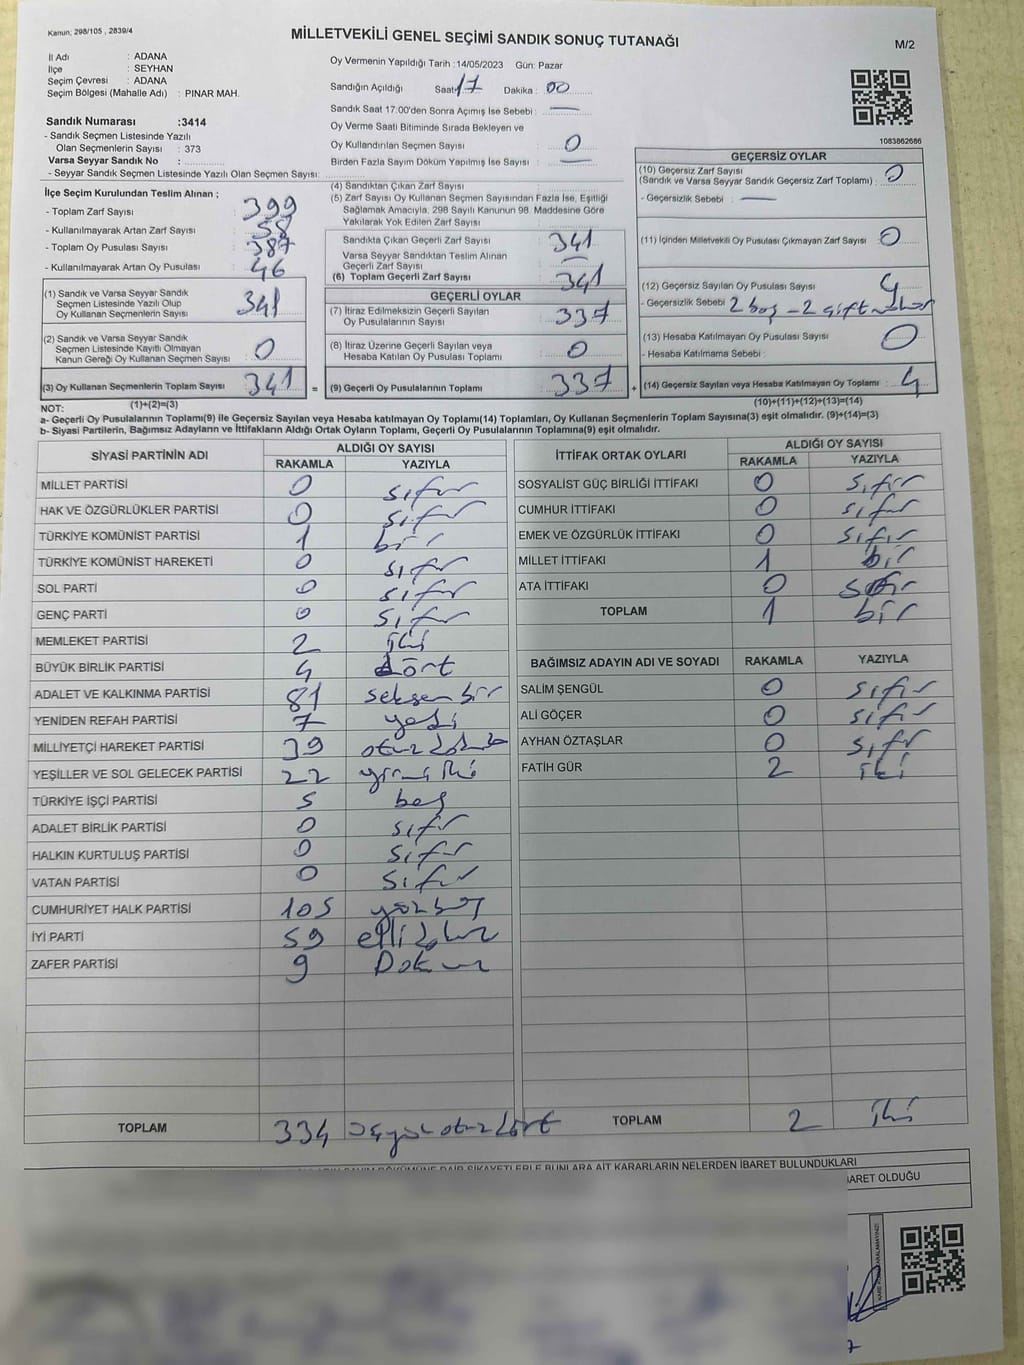 Kanun; 298/105 , 2839/4
MİLLETVEKİLİ GENEL SEÇİMİ SANDIK SONUÇ TUTANAĞI
M/2
İl Adı : ADANA
İlçe : SEYHAN
Seçim Çevresi : ADANA
Seçim Bölgesi (Mahalle Adı) : PINAR MAH.
Sandık Numarası :3414
- Sandık Seçmen Listesinde Yazılı
Olan Seçmenlerin Sayısı : 373
Varsa Seyyar Sandık No :
- Seyyar Sandık Seçmen Listesinde Yazılı Olan Seçmen Sayısı:
Oy Vermenin Yapıldığı Tarih :14/05/2023 Gün: Pazar
Sandığın Açıldığı Saat: 17 Dakika : 00
Sandık Saat 17:00'den Sonra Açımış İse Sebebi : —
Oy Verme Saati Bitiminde Sırada Bekleyen ve
Oy Kullandırılan Seçmen Sayısı : 0
Birden Fazla Sayım Döküm Yapılmış İse Sayısı : —
1083862686
İlçe Seçim Kurulundan Teslim Alınan ;
- Toplam Zarf Sayısı : 399
- Kullanılmayarak Artan Zarf Sayısı : 58
- Toplam Oy Pusulası Sayısı : 387
- Kullanılmayarak Artan Oy Pusulası : 46
(1) Sandık ve Varsa Seyyar Sandık
Seçmen Listesinde Yazılı Olup
Oy Kullanan Seçmenlerin Sayısı : 341
(2) Sandık ve Varsa Seyyar Sandık
Seçmen Listesinde Kayıtlı Olmayan
Kanun Gereği Oy Kullanan Seçmen Sayısı : 0
(3) Oy Kullanan Seçmenlerin Toplam Sayısı : 341 =
(1)+(2)=(3)
(4) Sandıktan Çıkan Zarf Sayısı :
(5) Zarf Sayısı Oy Kullanan Seçmen Sayısından Fazla İse, Eşitliği
Sağlamak Amacıyla, 298 Sayılı Kanunun 98. Maddesine Göre
Yakılarak Yok Edilen Zarf Sayısı :
Sandıkta Çıkan Geçerli Zarf Sayısı : 341
Varsa Seyyar Sandıktan Teslim Alınan
Geçerli Zarf Sayısı : —
(6) Toplam Geçerli Zarf Sayısı : 341
GEÇERLİ OYLAR
(7) İtiraz Edilmeksizin Geçerli Sayılan
Oy Pusulalarının Sayısı : 337
(8) İtiraz Üzerine Geçerli Sayılan veya
Hesaba Katılan Oy Pusulası Toplamı : 0
(9) Geçerli Oy Pusulalarının Toplamı : 337 +
GEÇERSİZ OYLAR
(10) Geçersiz Zarf Sayısı
(Sandık ve Varsa Seyyar Sandık Geçersiz Zarf Toplamı) : 0
- Geçersizlik Sebebi : —
(11) İçinden Milletvekili Oy Pusulası Çıkmayan Zarf Sayısı : 0
(12) Geçersiz Sayılan Oy Pusulası Sayısı : 4
- Geçersizlik Sebebi : 2 boş - 2 çift
(13) Hesaba Katılmayan Oy Pusulası Sayısı : 0
- Hesaba Katılmama Sebebi :
(14) Geçersiz Sayılan veya Hesaba Katılmayan Oy Toplamı : 4
(10)+(11)+(12)+(13)=(14)
NOT:
a- Geçerli Oy Pusulalarının Toplamı(9) ile Geçersiz Sayılan veya Hesaba katılmayan Oy Toplamı(14) Toplamları, Oy Kullanan Seçmenlerin Toplam Sayısına(3) eşit olmalıdır. (9)+(14)=(3)
b- Siyasi Partilerin, Bağımsız Adayların ve İttifakların Aldığı Ortak Oyların Toplamı, Geçerli Oy Pusulalarının Toplamına(9) eşit olmalıdır.
SİYASİ PARTİNİN ADI ALDIĞI OY SAYISI
RAKAMLA YAZIYLA
MİLLET PARTİSİ 0 sıfır
HAK VE ÖZGÜRLÜKLER PARTİSİ 0 sıfır
TÜRKİYE KOMÜNİST PARTİSİ 1 bir
TÜRKİYE KOMÜNİST HAREKETİ 0 sıfır
SOL PARTİ 0 sıfır
GENÇ PARTİ 0 sıfır
MEMLEKET PARTİSİ 2 iki
BÜYÜK BİRLİK PARTİSİ 4 dört
ADALET VE KALKINMA PARTİSİ 81 seksen bir
YENİDEN REFAH PARTİSİ 7 yedi
MİLLİYETÇİ HAREKET PARTİSİ 39 otuz dokuz
YEŞİLLER VE SOL GELECEK PARTİSİ 22 yirmi iki
TÜRKİYE İŞÇİ PARTİSİ 5 beş
ADALET BİRLİK PARTİSİ 0 sıfır
HALKIN KURTULUŞ PARTİSİ 0 sıfır
VATAN PARTİSİ 0 sıfır
CUMHURİYET HALK PARTİSİ 105 yüz beş
İYİ PARTİ 59 elli dokuz
ZAFER PARTİSİ 9 Dokuz
TOPLAM 334 üçyüz otuz dört
İTTİFAK ORTAK OYLARI ALDIĞI OY SAYISI
RAKAMLA YAZIYLA
SOSYALİST GÜÇ BİRLİĞİ İTTİFAKI 0 sıfır
CUMHUR İTTİFAKI 0 sıfır
EMEK VE ÖZGÜRLÜK İTTİFAKI 0 sıfır
MİLLET İTTİFAKI 1 bir
ATA İTTİFAKI 0 sıfır
TOPLAM 1 bir
BAĞIMSIZ ADAYIN ADI VE SOYADI RAKAMLA YAZIYLA
SALİM ŞENGÜL 0 sıfır
ALİ GÖÇER 0 sıfır
AYHAN ÖZTAŞLAR 0 sıfır
FATİH GÜR 2 iki
TOPLAM 2 iki
DÖKÜMÜNE DAİR ŞİKAYETLERLE BUNLARA AİT KARARLARIN NELERDEN İBARET BULUNDUKLARI
İBARET OLDUĞU